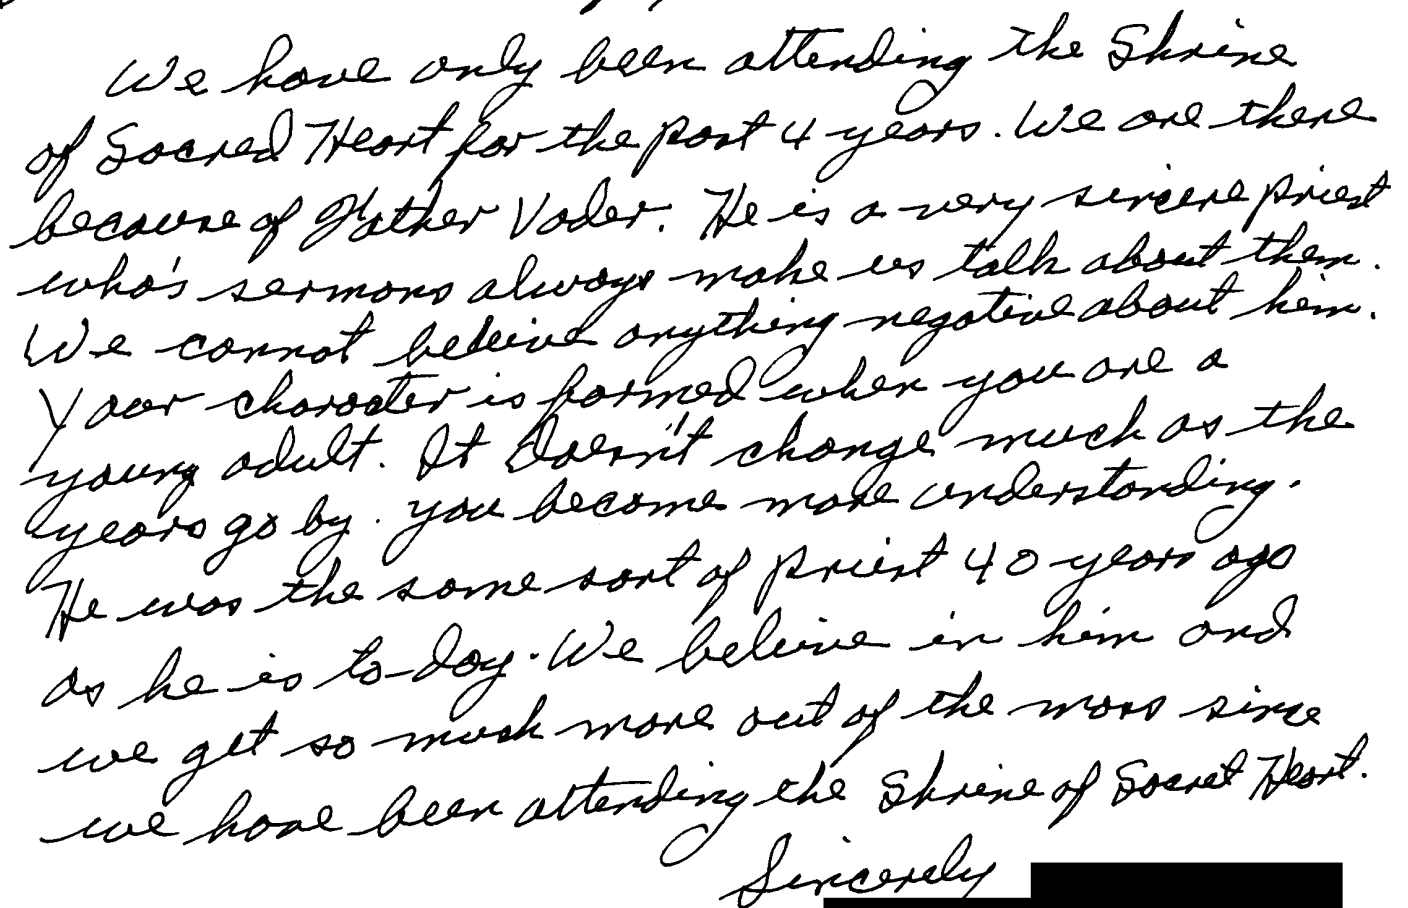 We have only been attending the Shrine
of Sacred Heart for the past 4 years. We are there
because of Father Vader. He is a very sincere priest
who's sermons always make us talk about them.
We cannot beleive anything negative about him.
Your character is formed when you are a
young adult. It Doesn't change much as the
years go by. you become more understanding.
He was the same sort of priest 40 years ago
as he is to-day. We believe in him and
we get so much more out of the mass since
we have been attending the Shrine of Sacret Heart.
Sincerely